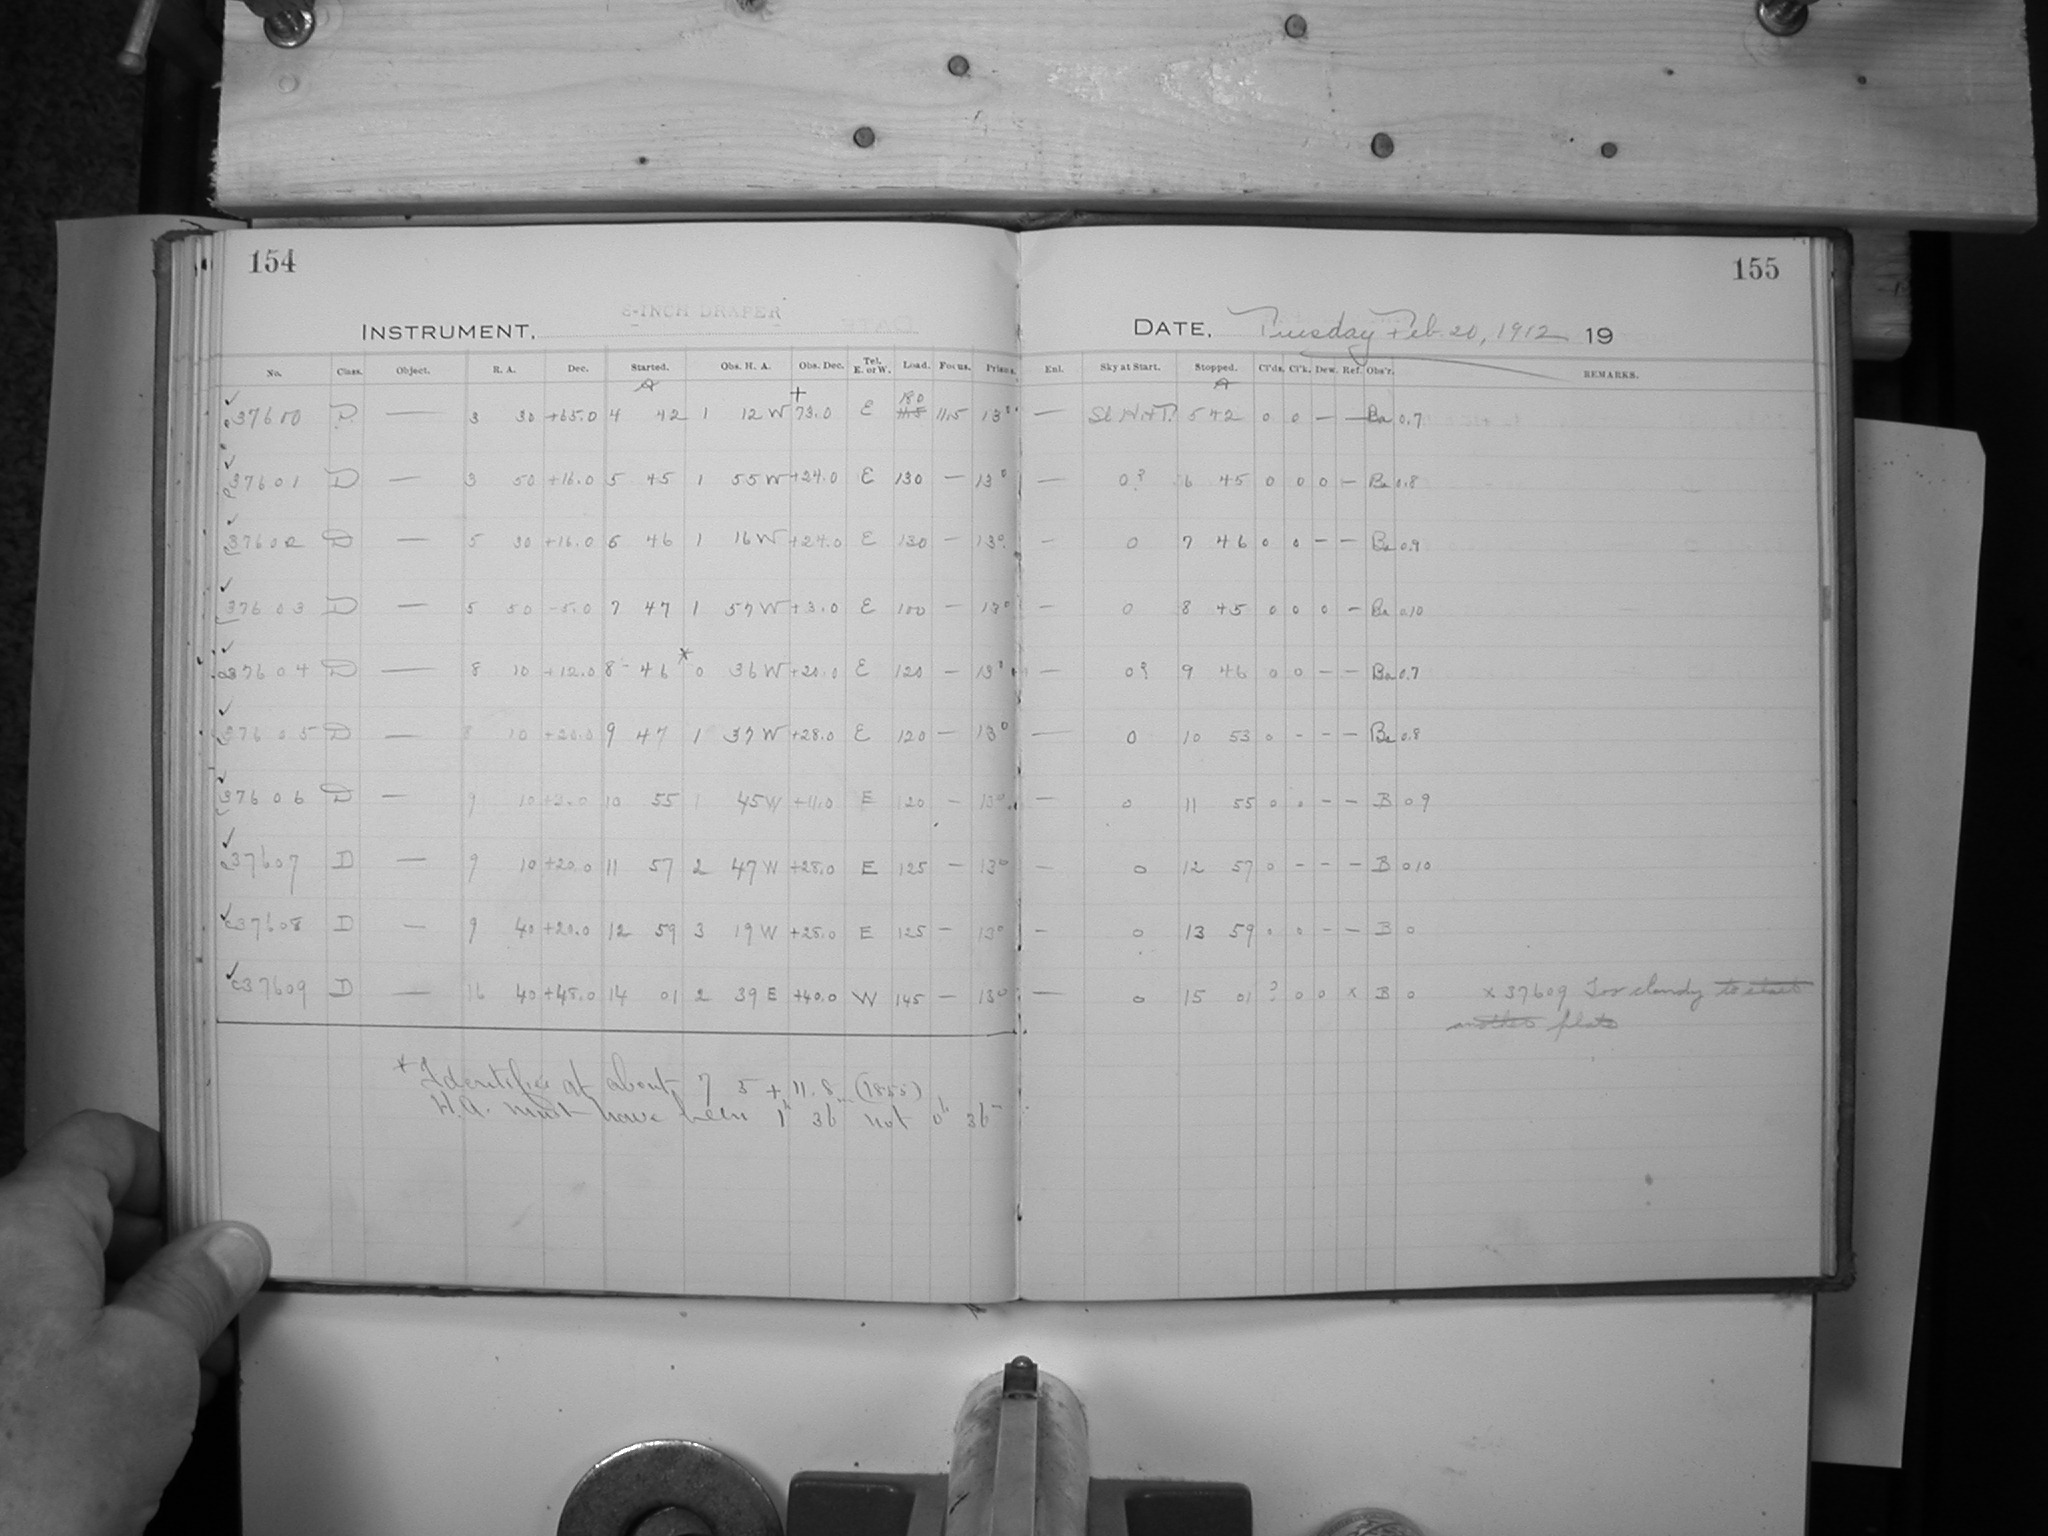 154
155
8-INCH DRAPER
INSTRUMENT.
DATE. Tuesday Feb. 20, 1912 19
No. Class. Object. R. A. Dec. Started. Obs. H. A. Obs. Dec. Tel. E. or W. Load. Focus. Prisms. Enl. Sky at Start. Stopped. Cl'ds. Cl'k. Dew. Ref. Obs'r. REMARKS.
37600 D — 3 30 +65.0 4 42 1 12 W +73.0 E 180 1115 13° — 5 42 0 0 — — Ba 0.7
c37601 D — 3 50 +16.0 5 45 1 55 W +24.0 E 130 — 13° — 0? 6 45 0 0 0 — Ba 0.8
c37602 D — 5 30 +16.0 6 46 1 16 W +24.0 E 130 — 13° — 0 7 46 0 0 — — Ba 0.9
c37603 D — 5 50 -5.0 7 47 1 57 W +3.0 E 100 — 13° — 0 8 45 0 0 0 — Ba 0.10
c37604 D — 8 10 +12.0 8 46 * 0 36 W +20.0 E 120 — 13° — 0? 9 46 0 0 — — Ba 0.7
c37605 D — 8 10 +20.0 9 47 1 37 W +28.0 E 120 — 13° — 0 10 53 0 - — — Ba 0.8
c37606 D — 9 10 +3.0 10 55 1 45 W +11.0 E 120 — 13° — 0 11 55 0 0 — — B 0 9
c37607 D — 9 10 +20.0 11 57 2 47 W +28.0 E 125 — 13° — 0 12 57 0 - — — B 0 10
c37608 D — 9 40 +20.0 12 59 3 19 W +28.0 E 125 — 13° — 0 13 59 0 0 — — B 0
c37609 D — 16 40 +48.0 14 01 2 39 E +40.0 W 145 — 13° — 0 15 01 ? 0 0 x B 0 x 37609 Too cloudy to start
another plate
* Identifies at about 7 5 + 11.8 (1855)
H.A. must have been 1h 36m not 0h 36m